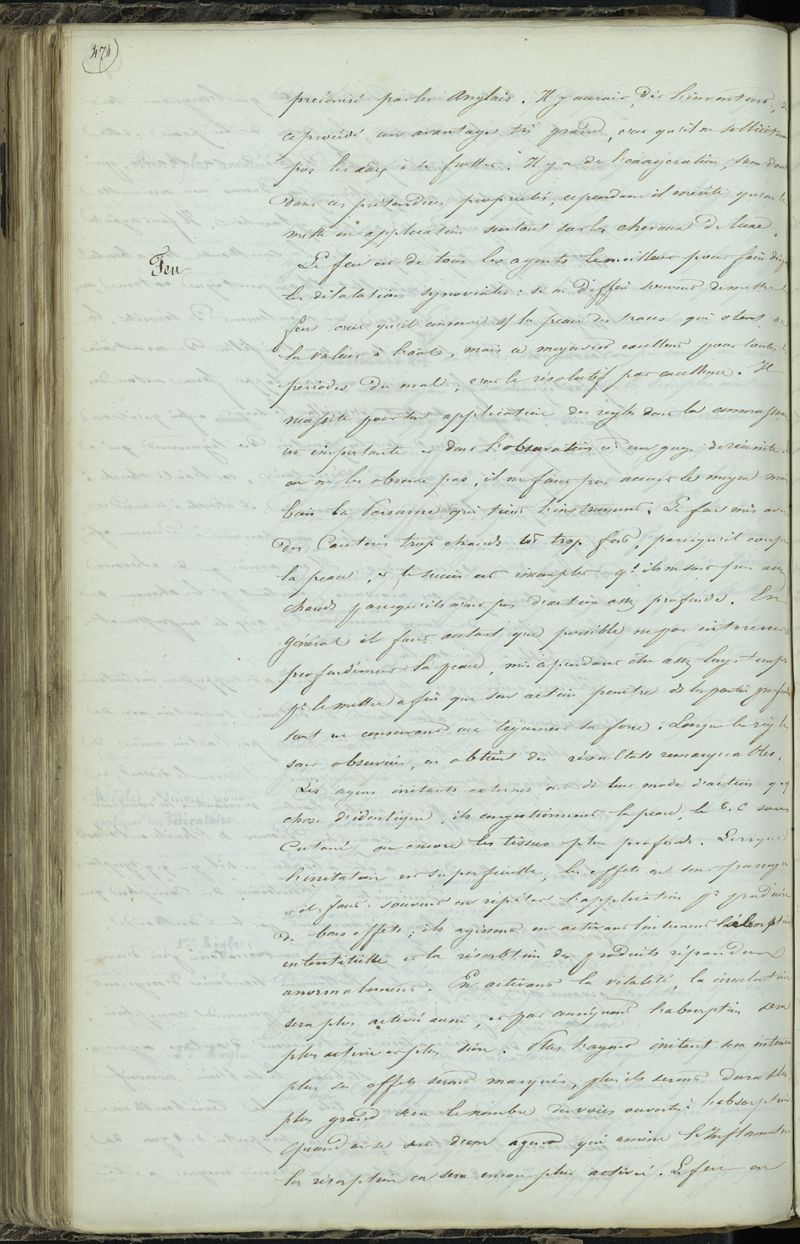 474
préconisé par les Anglais. Il y aurait, dit l'inventeur,
ce procédé un avantage très grand, c'est qu'il ne sollicite
pas les à se frotter. Il y a de l'exagération, sans
dans ces prétendues propriétés, cependant il mérite qu'on le
mette en application surtout sur les chevaux de luxe.
Feu
Le feu est de tous les agents le meilleur pour faire
les dilatations synoviales: on diffère souvent de mettre le
feu c'est qu'il conserve s/ la peau des traces qui ôtent de
la valeur à l'anl, mais ce moyen est excellent pour toutes les
périodes du mal, c'est le résolutif par excellence. Il
nécessite pour son application des règles dont la
est importante et dont l'observation est un gage de réussite.
on ne les observe pas, il ne faut pas accuser le moyen mais
bien la Personne qui tient l'instrument. Le feu mis avec
des Cautères trop chauds est trop fort, parcequ'il coupe
la peau, et le succès est incomplet qd ils ne sont pas assez
chauds parcequ'ils n'ont pas d'action assez profonde. En
général il faut autant que possible ne pas intéresser
profondément la peau, mais cependant être assez longtemps
pr le mettre afin que son action pénètre de les parties profondes
tout en conservant aux téguments sa force. Lorsque les règles
sont observées, on obtient des résultats remarquables.
Les agens irritants externes ont de leur mode d'action qlq
chose d'identique, ils congestionnent la peau, le T. C sous
Cutané ou encore les tissus plus profonds. Lorsque
l'irritation est superficielle, les effets en sont passagers
et il faut souvent en répéter l'application pr produire
de bons effets; ils agissent en activant l'absorption
interstitielle et la résorbtion des produits répandus
anormalement. En activant la vitalité, la circulation
sera plus activée aussi, et par conséquent l'absorption sera
plus active et plus sûre. Plus l'agent irritant sera intense
plus ses effets seront marqués, plus ils seront durables,
plus grand sera le nombre des voies ouvertes à l'absorption
Quand on se sert d'un agent qui amène l'inflammation
la résorption en sera encore plus activée. Le feu en